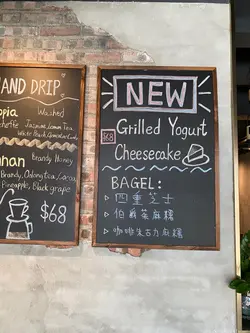 HAND DRIP
opia Washed
chette Jasmine, Lemon Tea
nan Brandy Honey
Brandy, Oolong tea, Cocoa
Pineapple, Black grape
$68
NEW
$68 Grilled Yogurt
Cheesecake
BAGEL:
▷ 四重芝士
▷ 伯爵茶麻糬
▷ 咖啡朱古力麻糬